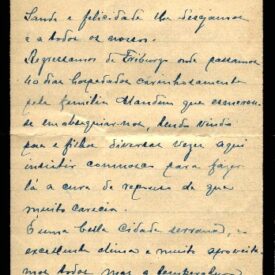 Saude e felicidade lhe desejamos
e a todos os nossos.
Regressamos de Friburgo onde passamos
40 dias hospedados carinhosamente
pela familia que
em obsequiar-nos, tendo vindo
pae e filhos diversas vezes aqui
insistir comnosco para fazer
lá a cura de repouso de que
muito carecia.
É uma bella cidade serrana,
excellente clima e muito aproveita
mos todos mas a temperatura